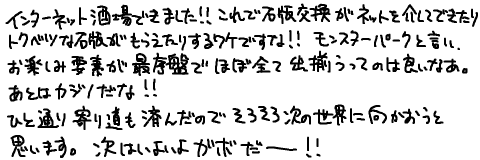 インターネット酒場できました!! これで石版交換がネットを介してできたり
トクベツな石版がもらえたりするワケですな!! モンスターパークと言い、
お楽しみ要素が最序盤でほぼ全て出揃うってのは良いなあ。
あとはカジノだな!!
ひと通り寄り道も済んだのでそろそろ次の世界に向かおうと
思います。次はいよいよガボだー!!